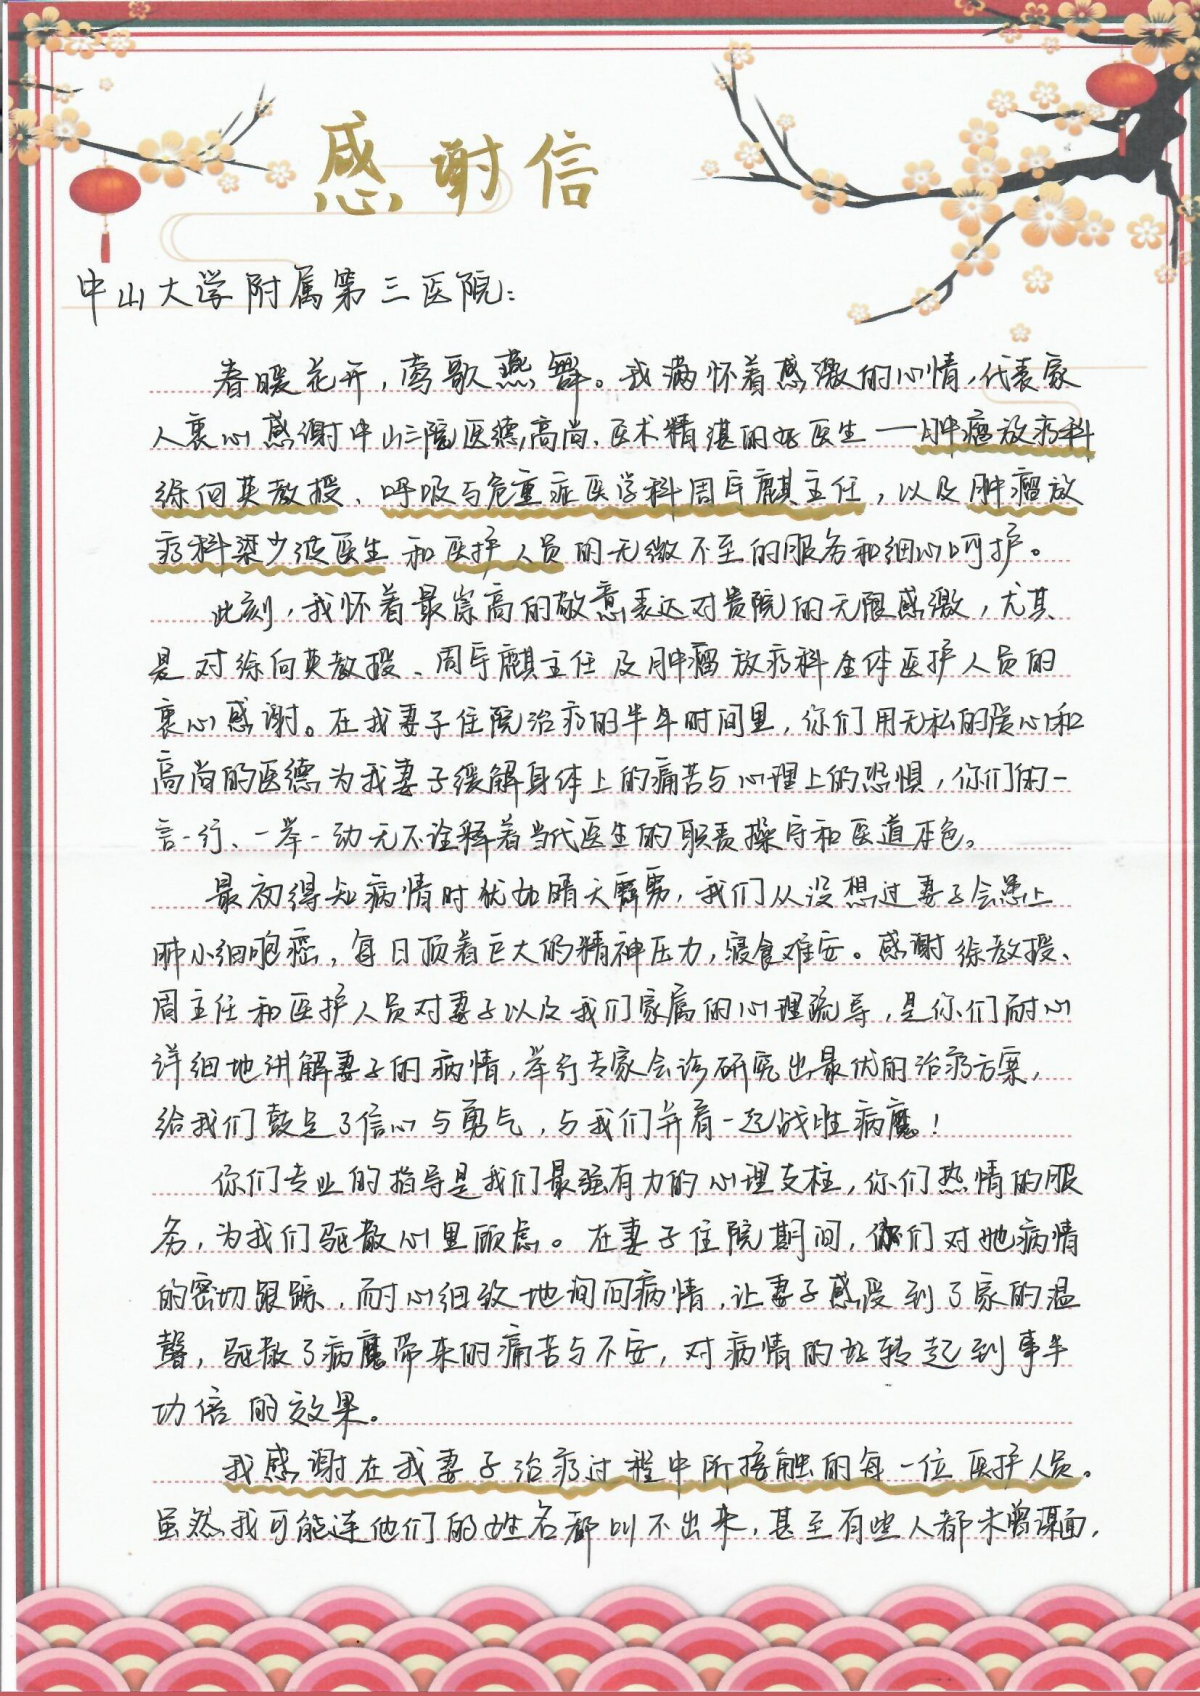 感谢信
中山大学附属第三医院:
春暖花开,莺歌燕舞。我满怀着感激的心情,代表家
人衷心感谢中山三院医德高尚、医术精湛的好医生——肿瘤放疗科
徐向英教授、呼吸与危重症医学科周宇麒主任,以及肿瘤放
疗科梁少波医生和医护人员的无微不至的服务和细心呵护。
此刻,我怀着最崇高的敬意表达对贵院的无限感激,尤其
是对徐向英教授、周宇麒主任及肿瘤放疗科全体医护人员的
衷心感谢。在我妻子住院治疗的半年时间里,你们用无私的爱心和
高尚的医德为我妻子缓解身体上的痛苦与心理上的恐惧,你们的一
言一行、一举一动无不诠释着当代医生的职责操守和医道本色。
最初得知病情时犹如晴天霹雳,我们从没想过妻子会患上
肺小细胞癌,每日顶着巨大的精神压力,寝食难安。感谢徐教授、
周主任和医护人员对妻子以及我们家属的心理疏导,是你们耐心
详细地讲解妻子的病情,举行专家会诊研究出最优的治疗方案,
给我们鼓足了信心与勇气,与我们并肩一起战胜病魔!
你们专业的指导是我们最强有力的心理支柱,你们热情的服
务,为我们驱散心里顾虑。在妻子住院期间,你们对她病情
的密切跟踪,耐心细致地询问病情,让妻子感受到了家的温
馨,驱散了病魔带来的痛苦与不安,对病情的好转起到事半
功倍的效果。
我感谢在我妻子治疗过程中所接触的每一位医护人员。
虽然我可能连他们的姓名都叫不出来,甚至有些人都未曾谋面,